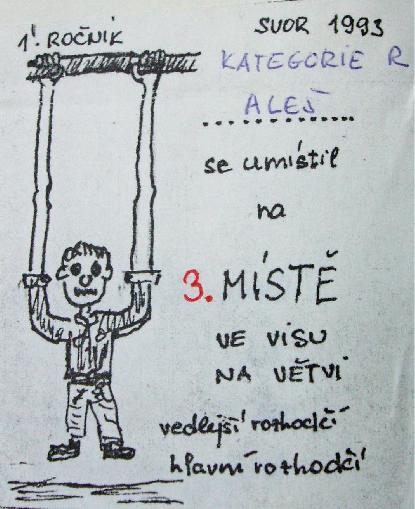 1. ROČNÍK
SVOR 1993
KATEGORIE R
ALEŠ
se umístil
na
3. MÍSTĚ
VE VISU
NA VĚTVI
vedlejší rozhodčí
hlavní rozhodčí